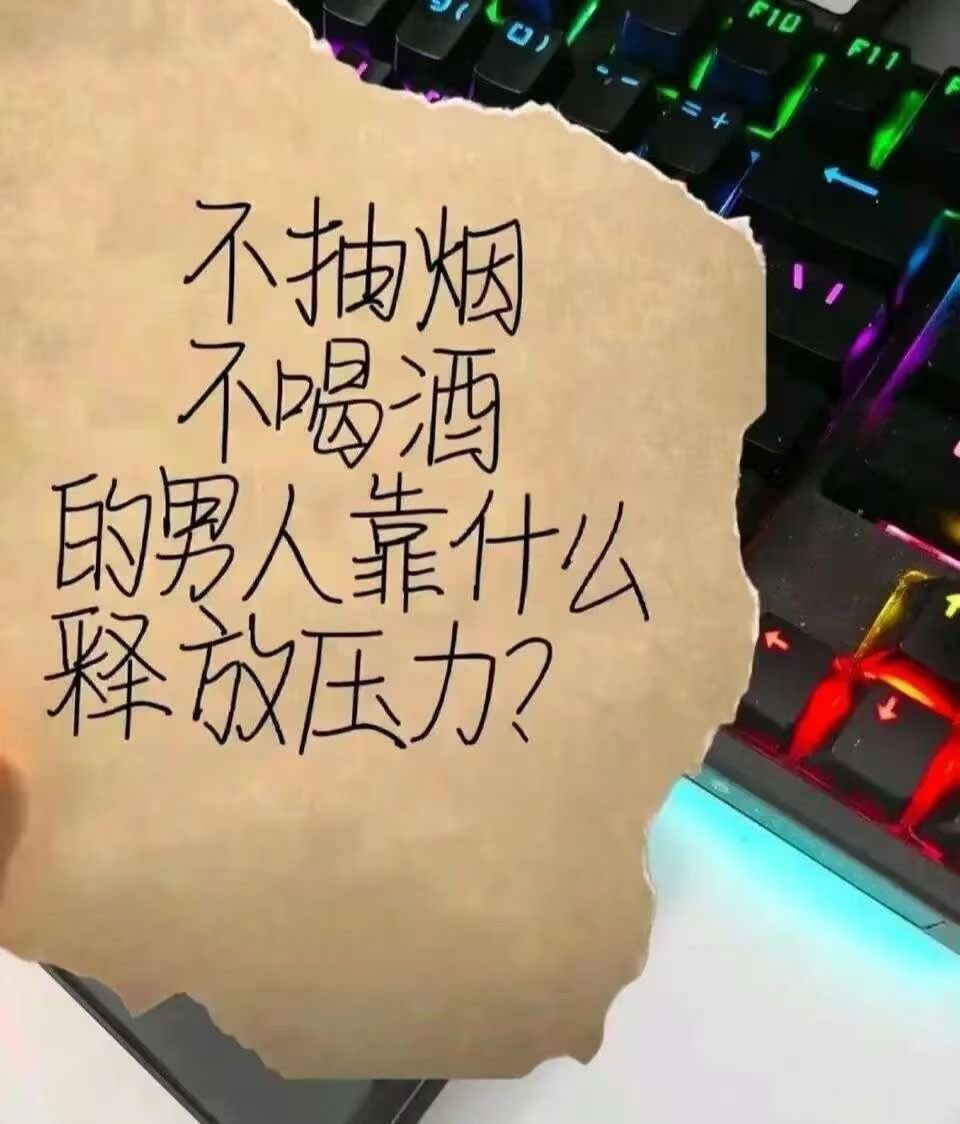 不抽烟
不喝酒
的男人靠什么
释放压力?
9(
0)
-
=+
F10
F11
F